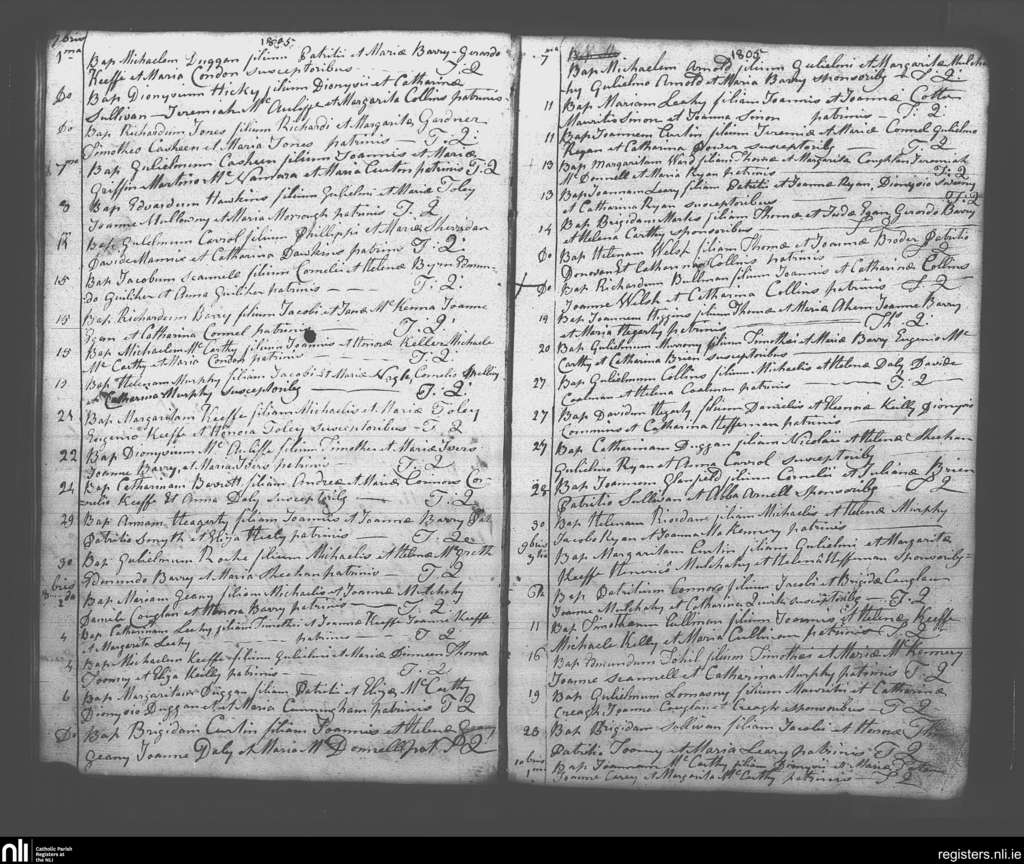 7bris 1805
1ma Bap Michaelem Duggan filium Patritii et Mariæ Barry - Gerardo
Keeffe et Maria Condon susceptoribus — T:Q
Do Bap Dionysium Hicky filium Dionysii et Catharinæ
Sullivan — Jeremiah McAuliffe et Margarita Collins patrinis
Do Bap Richardum Jones filium Richardi et Margaritæ Gardner
Timotheo Casheen et Maria Jones patrinis — T:Q:
7ma Bap Gulielmum Casheen filium Joannis et Mariæ
Griffin Martino McNamara et Maria Curtin patrinis T:Q
8 Bap Edvardum Hawkins filium Gulielmi et Mariæ Foley
Joanne Mullowny et Maria Morrogh patrinis T:Q
12 Bap Gulielmum Carrol filium Phillippi et Mariæ Sheridan
Davide Mannix et Catharina Dawkins patrinis T:Q:
15 Bap Jacobum Scannell filium Cornelii et Helenæ Edmun-
do et Anna patrinis — T:Q:
15 Bap Richardum Barry filium Jacobi et Janæ McKenna Joanne
Egan et Catharina Connel patrinis — T:Q:
19 Bap Michaelem McCarthy filium Joannis et Honoræ Keller Michaele
McCarthy et Maria Condon patrinis — T:Q
19 Bap Helenam Murphy filiam Jacobi et Mariæ Nagle, Cornelio
et Catharina Murphy susceptoribs — T:Q:
21 Bap Margaritam Keeffe filiam Michaelis et Mariæ Foley
Eugenio Keeffe et Honoria Foley susceptoribus - T:Q
22 Bap Dionysium McAuliffe filium Timothei et Mariæ Ivers
Joanne Barry, et Maria Ivers patrinis — T:Q
24 Bap Catharinam Barrott filiam Andreæ et Mariæ Connors Cor-
nelio Keeffe et Anna Daly susceptoribs — T:Q
29 Bap Annam Heagerty filiam Joannis et Joannæ Barry Pat
Patritio Smyth et Eliza Hiely patrinis — T:Q
30 Bap Gulielmum Roche filium Michaelis et Helenæ McGrath
Edmundo Barry et Maria Sheehan patrinis — T:Q
8bris 2da Bap Mariam Geany filiam Michaelis et Joannæ Mulchahy
Daniele Coughlan et Honora Barry patrinis — T:Q
4 Bap Catharinam Leahy filiam Timothei et Joannæ Keeffe Joanne Keeffe
et Margarita Leahy — patrinis — T:Q
4 Bap Michaelem Keeffe filium Gulielmi et Mariæ Dinneen Thoma
Toomy et Eliza Reilly patrinis — T:Q
6 Bap Margaritam Duggan filiam Patritii et Elizæ McCarthy
Dionysio Duggan et Maria Cunningham patrinis T:Q
Do Bap Brigidam Curtin filiam Joannis et Helenæ Geany
Geany Joanne Daly et Maria McDonnell pat. T:Q
1805
7 Bap Michaelem Arnold filium Gulielmi et Margaritæ Mulcha-
hy Gulielmo Arnold et Maria Barry sponsoribs — T:Q:
11 Bap Mariam Leahy filiam Joannis et Joannæ Cotter
Mauritio Simon et Joanna Simon patrinis — T:Q:
11 Bap Joannem Curtin filium Jeremiæ et Mariæ Connel Gulielmo
Ryan et Catharina Power susceptoribs — T:Q
13 Bap Margaritam Ward filiam Thomæ et Margarita Coughlan Jeremiah
McDonnell et Maria Ryan patrinis — T:Q
13 Bap Joannam Leary filiam Patritii et Joannæ Ryan, Dionysio
et Catharina Ryan susceptoribus — T:Q
14 Bap Brigidam Marks filiam Thomæ et Judæ Egan Gerardo Barry
et Helena Carthy sponsoribus — T:Q
Do Bap Helenam Welsh filiam Thomæ et Joannæ Broder Patritio
Donovan et Catharina Collins patrinis — T:Q
Do Bap Richardum Bullman filium Joannis et Catharinæ Collins
Joanne Welsh et Catharina Collins patrinis — T:Q
19 Bap Joannem Higgins filium Thomæ et Mariæ Ahern Joanne Barry
et Maria Hegarty patrinis — Ths Q
20 Bap Gulielmum filium Timothei et Mariæ Barry Eugenio Mc
Carthy et Catharina Brien susceptoribus — T:Q
27 Bap Gulielmum Collins filium Michaelis et Helenæ Daly Davide
Coalman et Helena Coalman patrinis — T:Q
27 Bap Davidem Hegarty filium Danielis et Keilly Dionysio
Commins et Catharina Heffernan patrinis —
27 Bap Catharinam Duggan filiam Nicolai et Helenæ Sheehan
Gulielmo Ryan et Anna Carrol susceptoribs —
28 Bap Joannem filium Cornelii et Julianæ Brien
Patritio Sullivan et Abba Arnell sponsoribs — T:Q
30 Bap Helenam Riordan filiam Michaelis et Helenæ Murphy
Jacobo Ryan et Joanna McKenery patrinis
9bris 3tio Bap Margaritam Curtin filiam Gulielmi et Margaritæ
Keeffe Henrico Mulchahy et Helena Heffernan sponsoribs
6ta Bap Patritium Connors filium Jacobi et Brigidæ Coughlan
Joanne Mulchahy et Catharina Quirk susceptoribs — T:Q
11 Bap Timotheum Cullinan filium Joannis et Helenæ Keeffe
Michaele Kelly et Maria Cullinan patrinis T:Q
16 Bap Edmundum Tohil filium Timothei et Mariæ McKennery
Joanne Scannell et Catharina Murphy patrinis T:Q
19 Bap Gulielmum Lomasny filium Mauritii et Catharinæ
Creagh Joanne Coughlan et Creagh sponsoribus — T:Q
23 Bap Brigidam Sullivan filiam Jacobi et Honoræ
Patritio Toomy et Maria Leary patrinis T:Q
10bris 1ma Bap Joannam McCarthy filiam Dionysii et Mariæ
Joanne Carey et Margarita McCarthy patrinis — T:Q
nli
Catholic Parish
Registers at
the NLI
registers.nli.ie